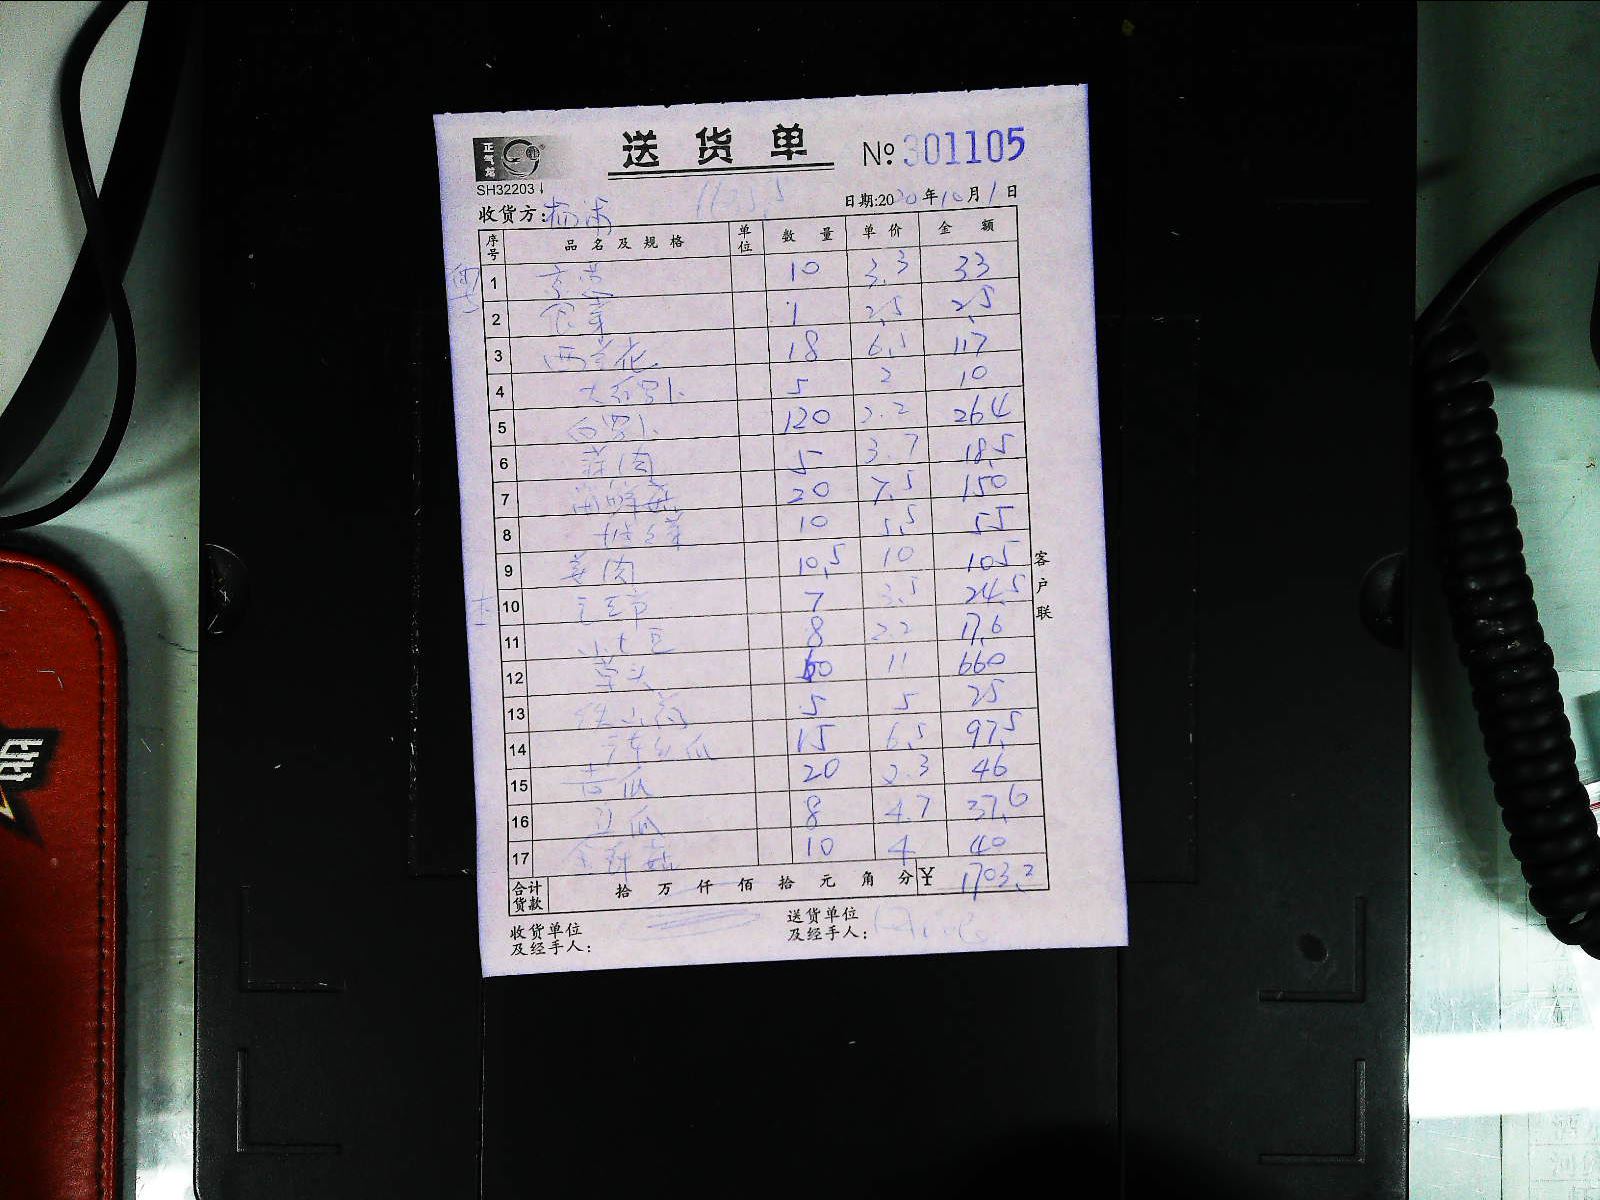 正气龙
送货单 № 301105
SH32203
收货方: 日期:2020年10月1日
序号 品名及规格 单位 数量 单价 金额
1 京葱 10 3.3 33
2 1 2.5 2.5
3 西兰花 18 6.5 117
4 大红罗卜 5 2 10
5 白罗卜 120 2.2 264
6 5 3.7 18.5
7 20 7.5 150
8 10 5.5 55
9 姜肉 10.5 10 105
10 7 3.5 24.5
11 小土豆 8 2.2 17.6
12 60 11 660
13 铁山药 5 5 25
14 15 6.5 97.5
15 20 2.3 46
16 8 4.7 37.6
17 金针菇 10 4 40
合计货款 拾万仟佰拾元角分 ¥ 1703.2
客户联
收货单位 送货单位
及经手人: 及经手人: